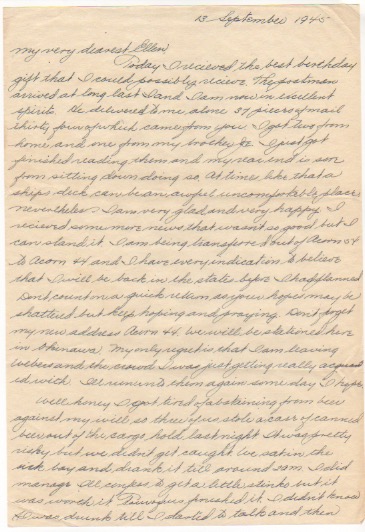 13 September 1945
My very dearest Ellen,
Today I recieved the best berthday
gift that I could possibly recieve. The postman
arrived at long last and I am now in excellent
spirits. He delivered to me alone 37 pieces of mail
thirty four of which came from you. I got two from
home and one from my brother. I just got
finished reading them and my rear end is sore
from sitting down doing so. At times like that a
ships deck can be an awful uncomfortable place
nevertheless I am very glad and very happy. I
recieved some more news that wasn't so good but I
can stand it. I am being transfered out of Acorn 54
to Acorn 44 and I have every indication to believe
that I will be back in the states before I had planned
Dont count on a quick return as your hopes may be
shattered but keep hoping and praying. Dont forget
my new address Acorn 44. We will be stationed here
in Okinawa. My only regret is that I am leaving
Webers and the crowd I was just getting really acquaint
ed with. I'll run into them again some day I hope.
Well honey I got tired of abstaining from beer
against my will so three of us stole a case of canned
beer out of the cargo hold last night. It was pretty
risky but we didnt get caught. We sat in the
sick bay and drank it till around 3 AM. I did
manage to get a little stinko but it
was worth it. I didn't know
I was drunk till I started to talk and then